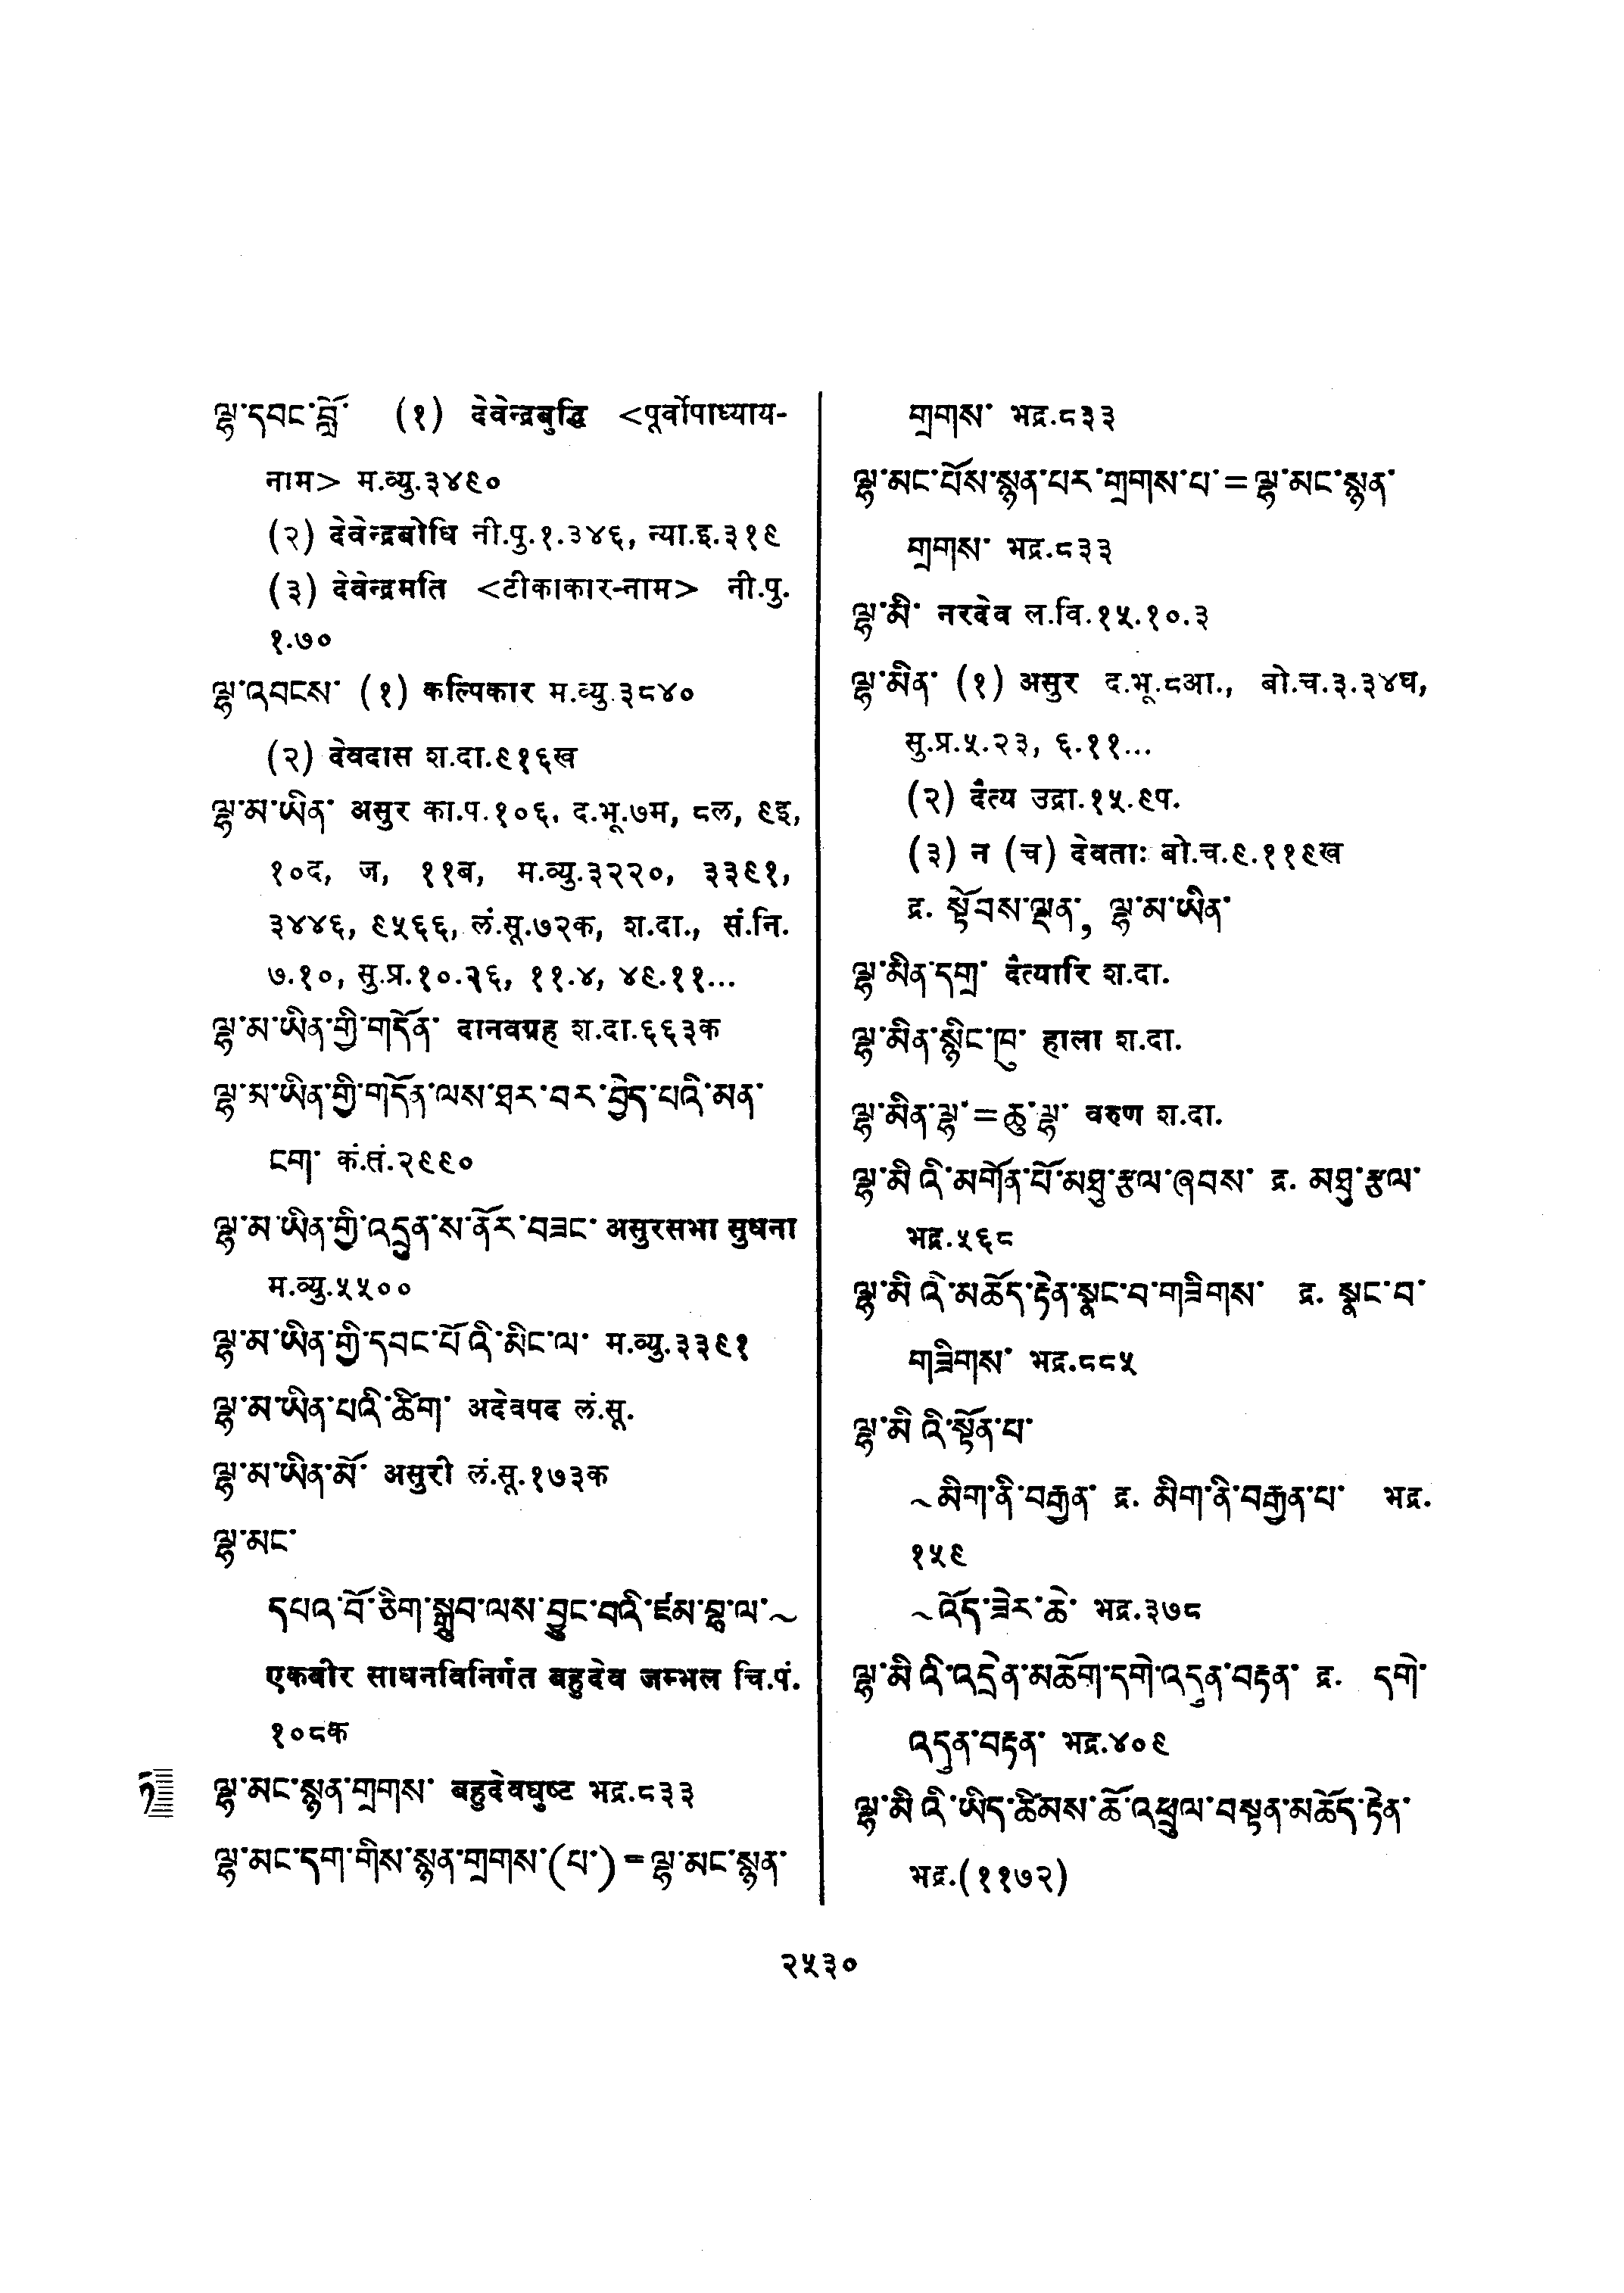 ལྷ་དབང་བློ་ (१) देवेन्द्रबुद्धि <पूर्वोपाध्याय-
नाम> म.व्यु.३४९०
(२) देवेन्द्रबोधि नी.पु.१.३४६, न्या.इ.३१९
(३) देवेन्द्रमति <टीकाकार-नाम> नी.पु.
१.७०
ལྷ་འབངས་ (१) कल्पिकार म.व्यु.३८४०
(२) देवदास श.दा.९१६ख
ལྷ་མ་ཡིན་ असुर का.प.१०६, द.भू.७म, ८ल, ९इ,
१०द, ज, ११ब, म.व्यु.३२२०, ३३९१,
३४४६, ९५६६, लं.सू.७२क, श.दा., सं.नि.
७.१०, सु.प्र.१०.२६, ११.४, ४९.११...
ལྷ་མ་ཡིན་གྱི་གདོན་ दानवग्रह श.दा.६६३क
ལྷ་མ་ཡིན་གྱི་གདོན་ལས་ཐར་བར་བྱེད་པའི་མན་
ངག་ कं.तं.२९९०
ལྷ་མ་ཡིན་གྱི་འདུན་ས་ནོར་བཟང་ असुरसभा सुधना
म.व्यु.५५००
ལྷ་མ་ཡིན་གྱི་དབང་པོ་འི་མིང་ལ་ म.व्यु.३३९१
ལྷ་མ་ཡིན་པའི་ཚིག་ अदेवपद लं.सू.
ལྷ་མ་ཡིན་མོ་ असुरी लं.सू.१७३क
ལྷ་མང་
དཔའ་བོ་ཅིག་སྒྲུབ་ལས་བྱུང་བའི་ཛམ་བྷ་ལ་~
एकवीर साधनविनिर्गत बहुदेव जम्भल चि.पं.
१०८क
ལྷ་མང་སྙན་གྲགས་ बहुदेवघुष्ट भद्र.८३३
ལྷ་མང་དག་གིས་སྙན་གྲགས་(པ་) = ལྷ་མང་སྙན་
གྲགས་ भद्र.८३३
ལྷ་མང་པོས་སྙན་པར་གྲགས་པ་ = ལྷ་མང་སྙན་
གྲགས་ भद्र.८३३
ལྷ་མི་ नरदेव ल.वि.१५.१०.३
ལྷ་མིན་ (१) असुर द.भू.८आ., बो.च.३.३४घ,
सु.प्र.५.२३, ६.११...
(२) दैत्य उद्रा.१५.९प.
(३) न (च) देवताः बो.च.९.११९ख
द्र. སྟོབས་ལྡན་, ལྷ་མ་ཡིན་
ལྷ་མིན་དགྲ་ दैत्यारि श.दा.
ལྷ་མིན་སྙིང་ཁུ་ हाला श.दा.
ལྷ་མིན་ལྷ་ = ཆུ་ལྷ་ वरुण श.दा.
ལྷ་མི་འི་མགོན་པོ་མཐུ་རྩལ་ཞབས་ द्र. མཐུ་རྩལ་
भद्र.५६८
ལྷ་མི་འི་མཆོད་རྟེན་སྣང་བ་གཟིགས་ द्र. སྣང་བ་
གཟིགས་ भद्र.८८५
ལྷ་མི་འི་སྟོན་པ་
~མིག་ནི་བརྒྱན་ द्र. མིག་ནི་བརྒྱན་པ་ भद्र.
१५९
~འོད་ཟེར་ཆེ་ भद्र.३७८
ལྷ་མི་འི་འདྲེན་མཆོག་དགེ་འདུན་བརྟན་ द्र. དགེ་
འདུན་བརྟན་ भद्र.४०९
ལྷ་མི་འི་ཡིད་ཚིམས་ཆོ་འཕྲུལ་བསྟན་མཆོད་རྟེན་
भद्र.(११७२)
२५३०